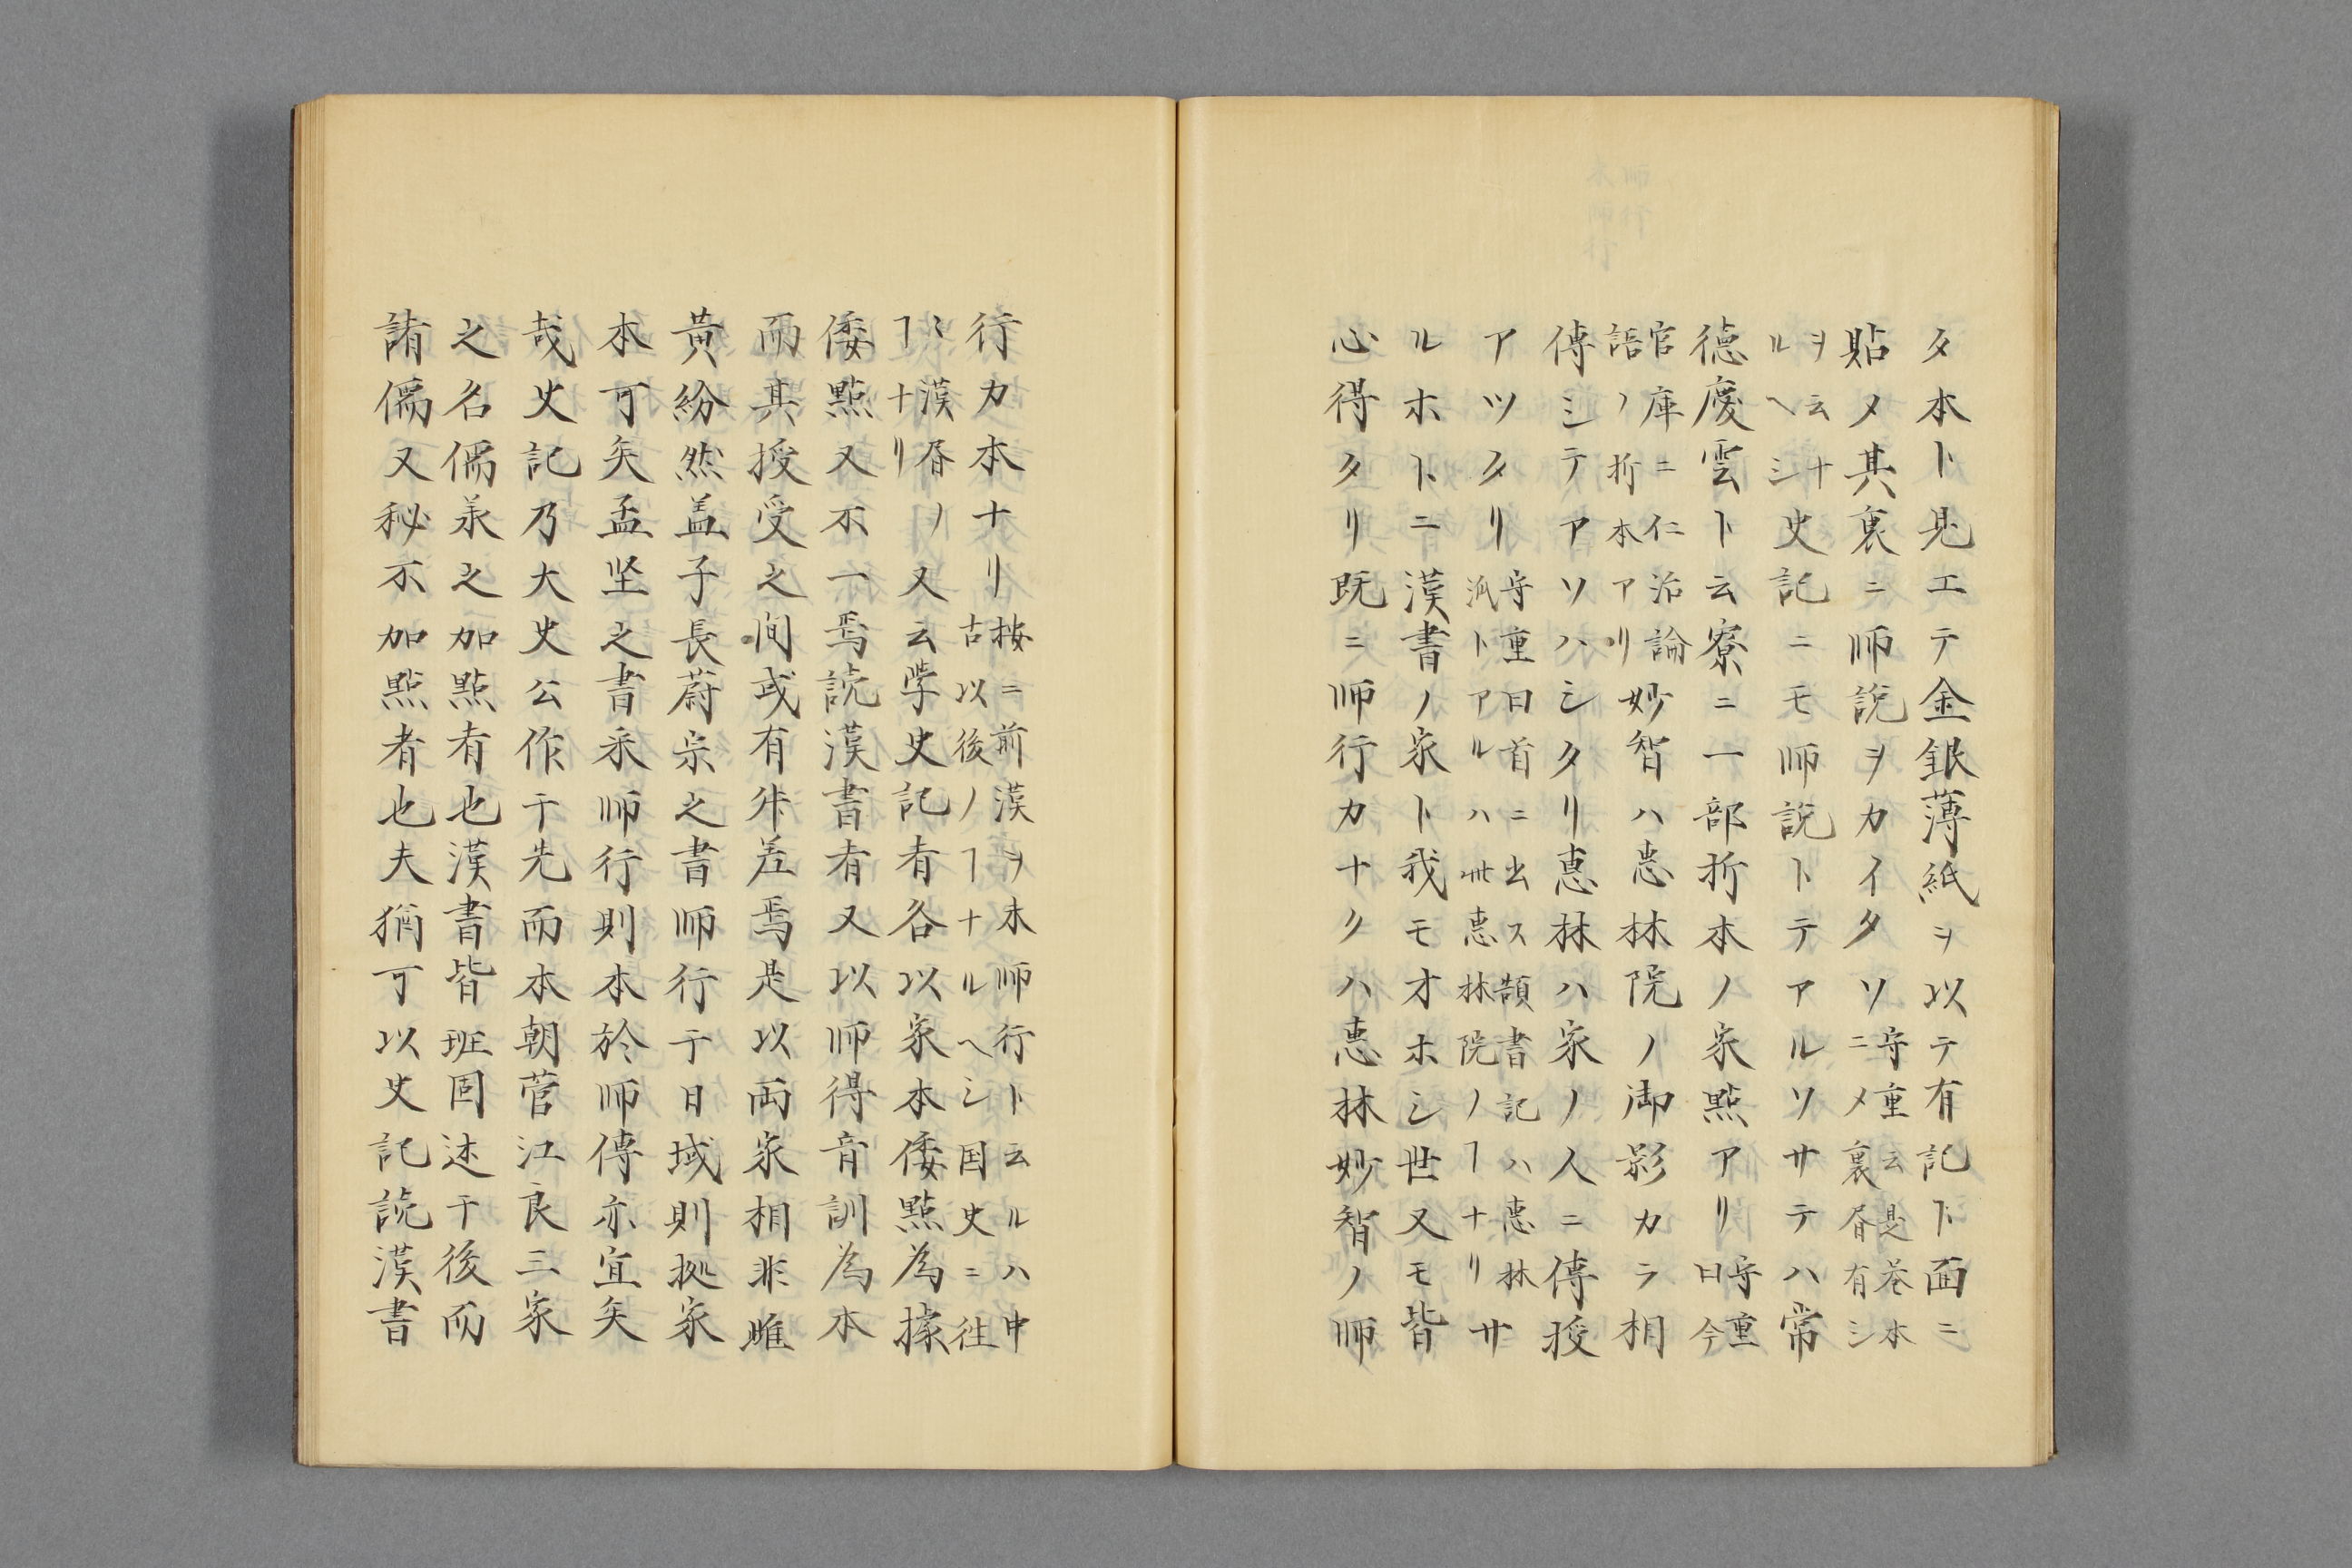 タ本ト見エテ金銀薄紙ヲ以テ有記ト面ニ
貼メ其裏ニ師説ヲカイタソ守重云是巻本ニメ裏昏有シ
ヲ云ナルヘシ史記ニモ師説トテアルソサテハ常
徳慶雲ト云寮ニ一部折本ノ家點アリ守重曰今
官庫ニ仁治論語ノ折本アリ妙智ハ恵林院ノ御影カラ相
傳シテアソハシタリ恵林ハ家ノ人ニ傳授
アツタリ守重曰首ニ出ス頡書記ハ恵林派トアルハ此恵林院ノヿナリサ
ルホトニ漢書ノ家ト我モオホシ世又モ皆
心得タリ既ニ師行カナクハ恵林妙智ノ師
行カ本ナリ按ニ前漢ヲ本師行ト云ルハ中古以後ノヿナルヘシ国史ニ徃
〻漢昏ノヿナリ又云學史記者各以家本倭點為據
倭點又不一焉読漢書者又以師得音訓為本
而其授受之間或有舛差焉是以両家相非雌
黄紛然盖子長蔚宗之書師行于日域則拠家
本可矣孟坚之書釆師行則本於師傳亦宜矣
哉史記乃大史公作于先而本朝菅江良三家
之名儒羕之加點者也漢書皆班固述于後而
諸儒又秘不加點者也夫猶可以史記読漢書